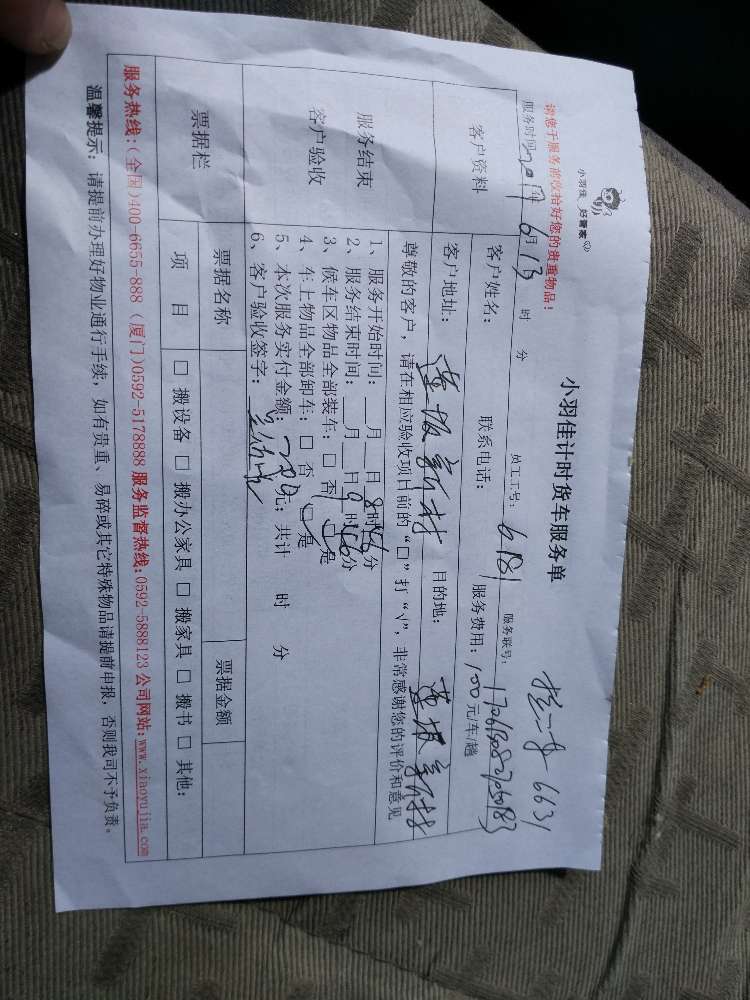 小羽佳 好管家
小羽佳计时货车服务单
6631
请您于服务前收拾好您的贵重物品！
服务时间: 2017 6月13 时 分 员工工号: 6181 服务联号: 
客户资料 客户姓名: 联系电话: 服务费用: 100元/车/趟
客户地址: 莲坂新村 目的地: 莲坂新村
服务结束
客户验收
尊敬的客户，请在相应验收项目前的“□”打“√”，非常感谢您的评价和意见
1、服务开始时间: __月__日8时46分
2、服务结束时间: __月__日9时56分
3、候车区物品全部装车: □ 否 □是
4、车上物品全部卸车: □ 否 □是
5、本次服务实付金额: 元; 共计 时 分
6、客户验收签字:
票据栏 票据名称 票据金额
项 目 □ 搬设备 □ 搬办公家具 □ 搬家具 □ 搬书 □ 其他:
服务热线:(全国)400-6655-888 (厦门)0592-5178888 服务监督热线:0592-5888123 公司网站:www.xiaoyujia.com
温馨提示: 请提前办理好物业通行手续，如有贵重、易碎或其它特殊物品请提前申报，否则我司不予负责。